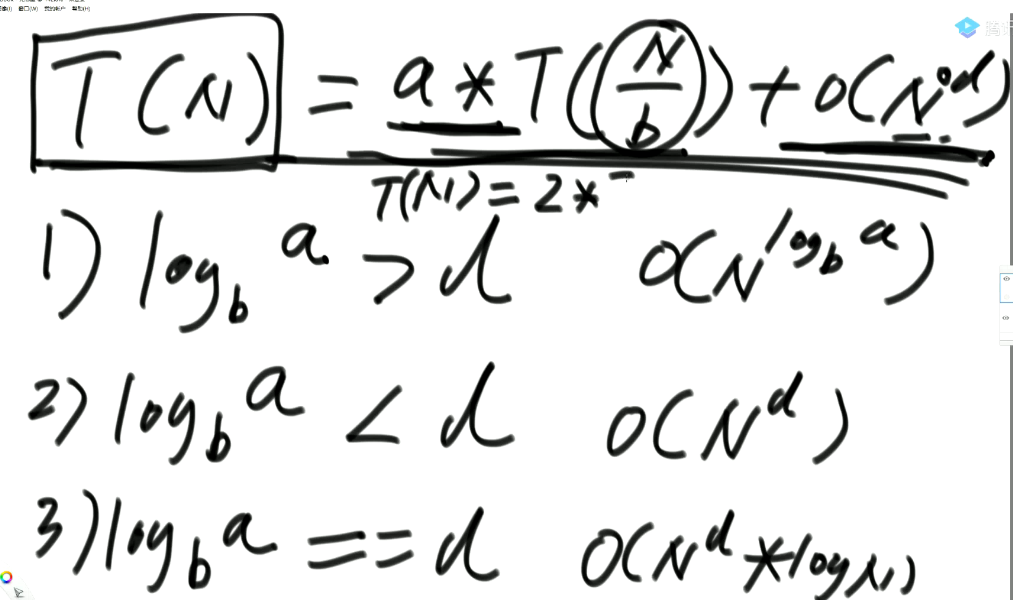 窗口(W) 我的帐户 帮助(H)
T(N) = a * T(N/b) + O(N^d)
T(N) = 2 *
1) log_b a > d O(N^(log_b a))
2) log_b a < d O(N^d)
3) log_b a == d O(N^d * log N)